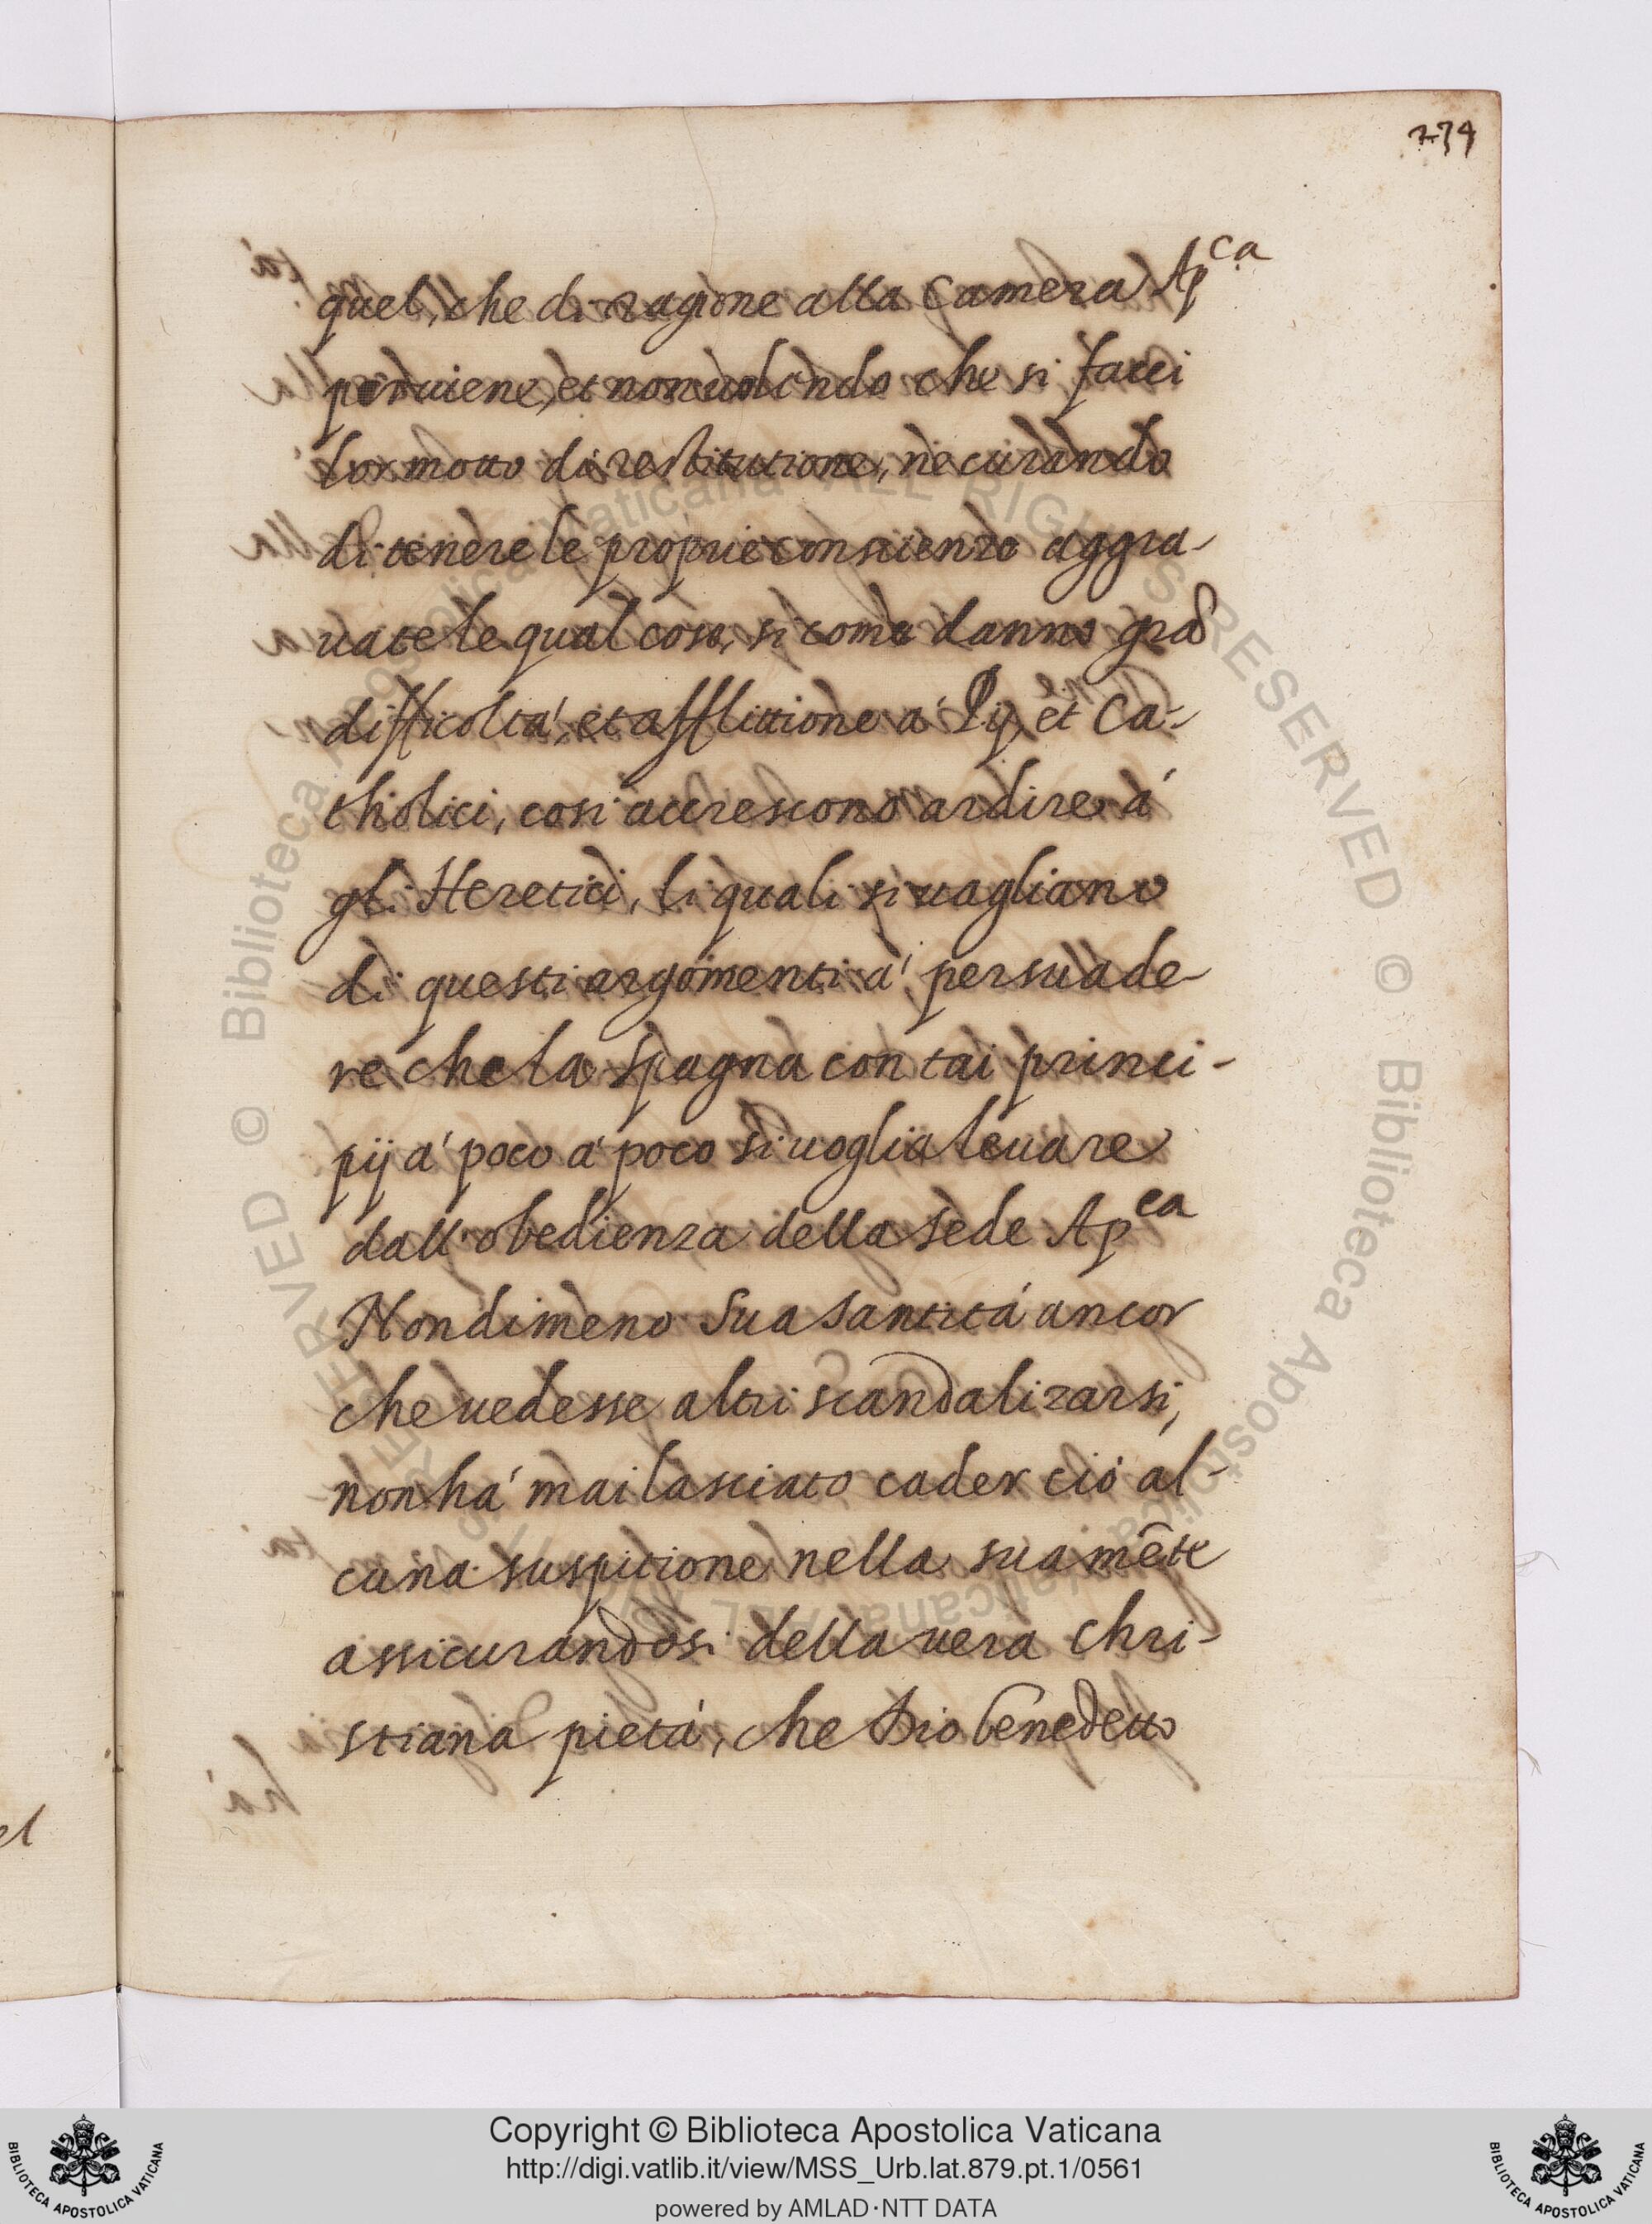 274
quel, che di ragione alla Camera Ap.ca
peruiene, et non uolendo che si facci
lor motto di restitutione, ne curando
di tenere le proprie conscienze aggra-
uate le qual cose, si come danno
difficoltà, et afflittione a' Pij, et Ca-
tholici, cosi accrescono ardire á
gli Heretici, li quali si uagliano
di questi argomenti a' persuade-
re che la Spagna con tai princi-
pij a' poco a' poco si uoglia leuare
dall'obedienza della sede Ap.ca
Nondimeno Sua Santitá ancor
che uedesse altri scandalizarsi,
non há mai lasciato cader ció al-
cuna suspitione nella sua mẽte
assicurandosi della uera Chri-
stiana pietá, che Dio benedetto
el
Copyright © Biblioteca Apostolica Vaticana
http://digi.vatlib.it/view/MSS_Urb.lat.879.pt.1/0561
powered by AMLAD·NTT DATA